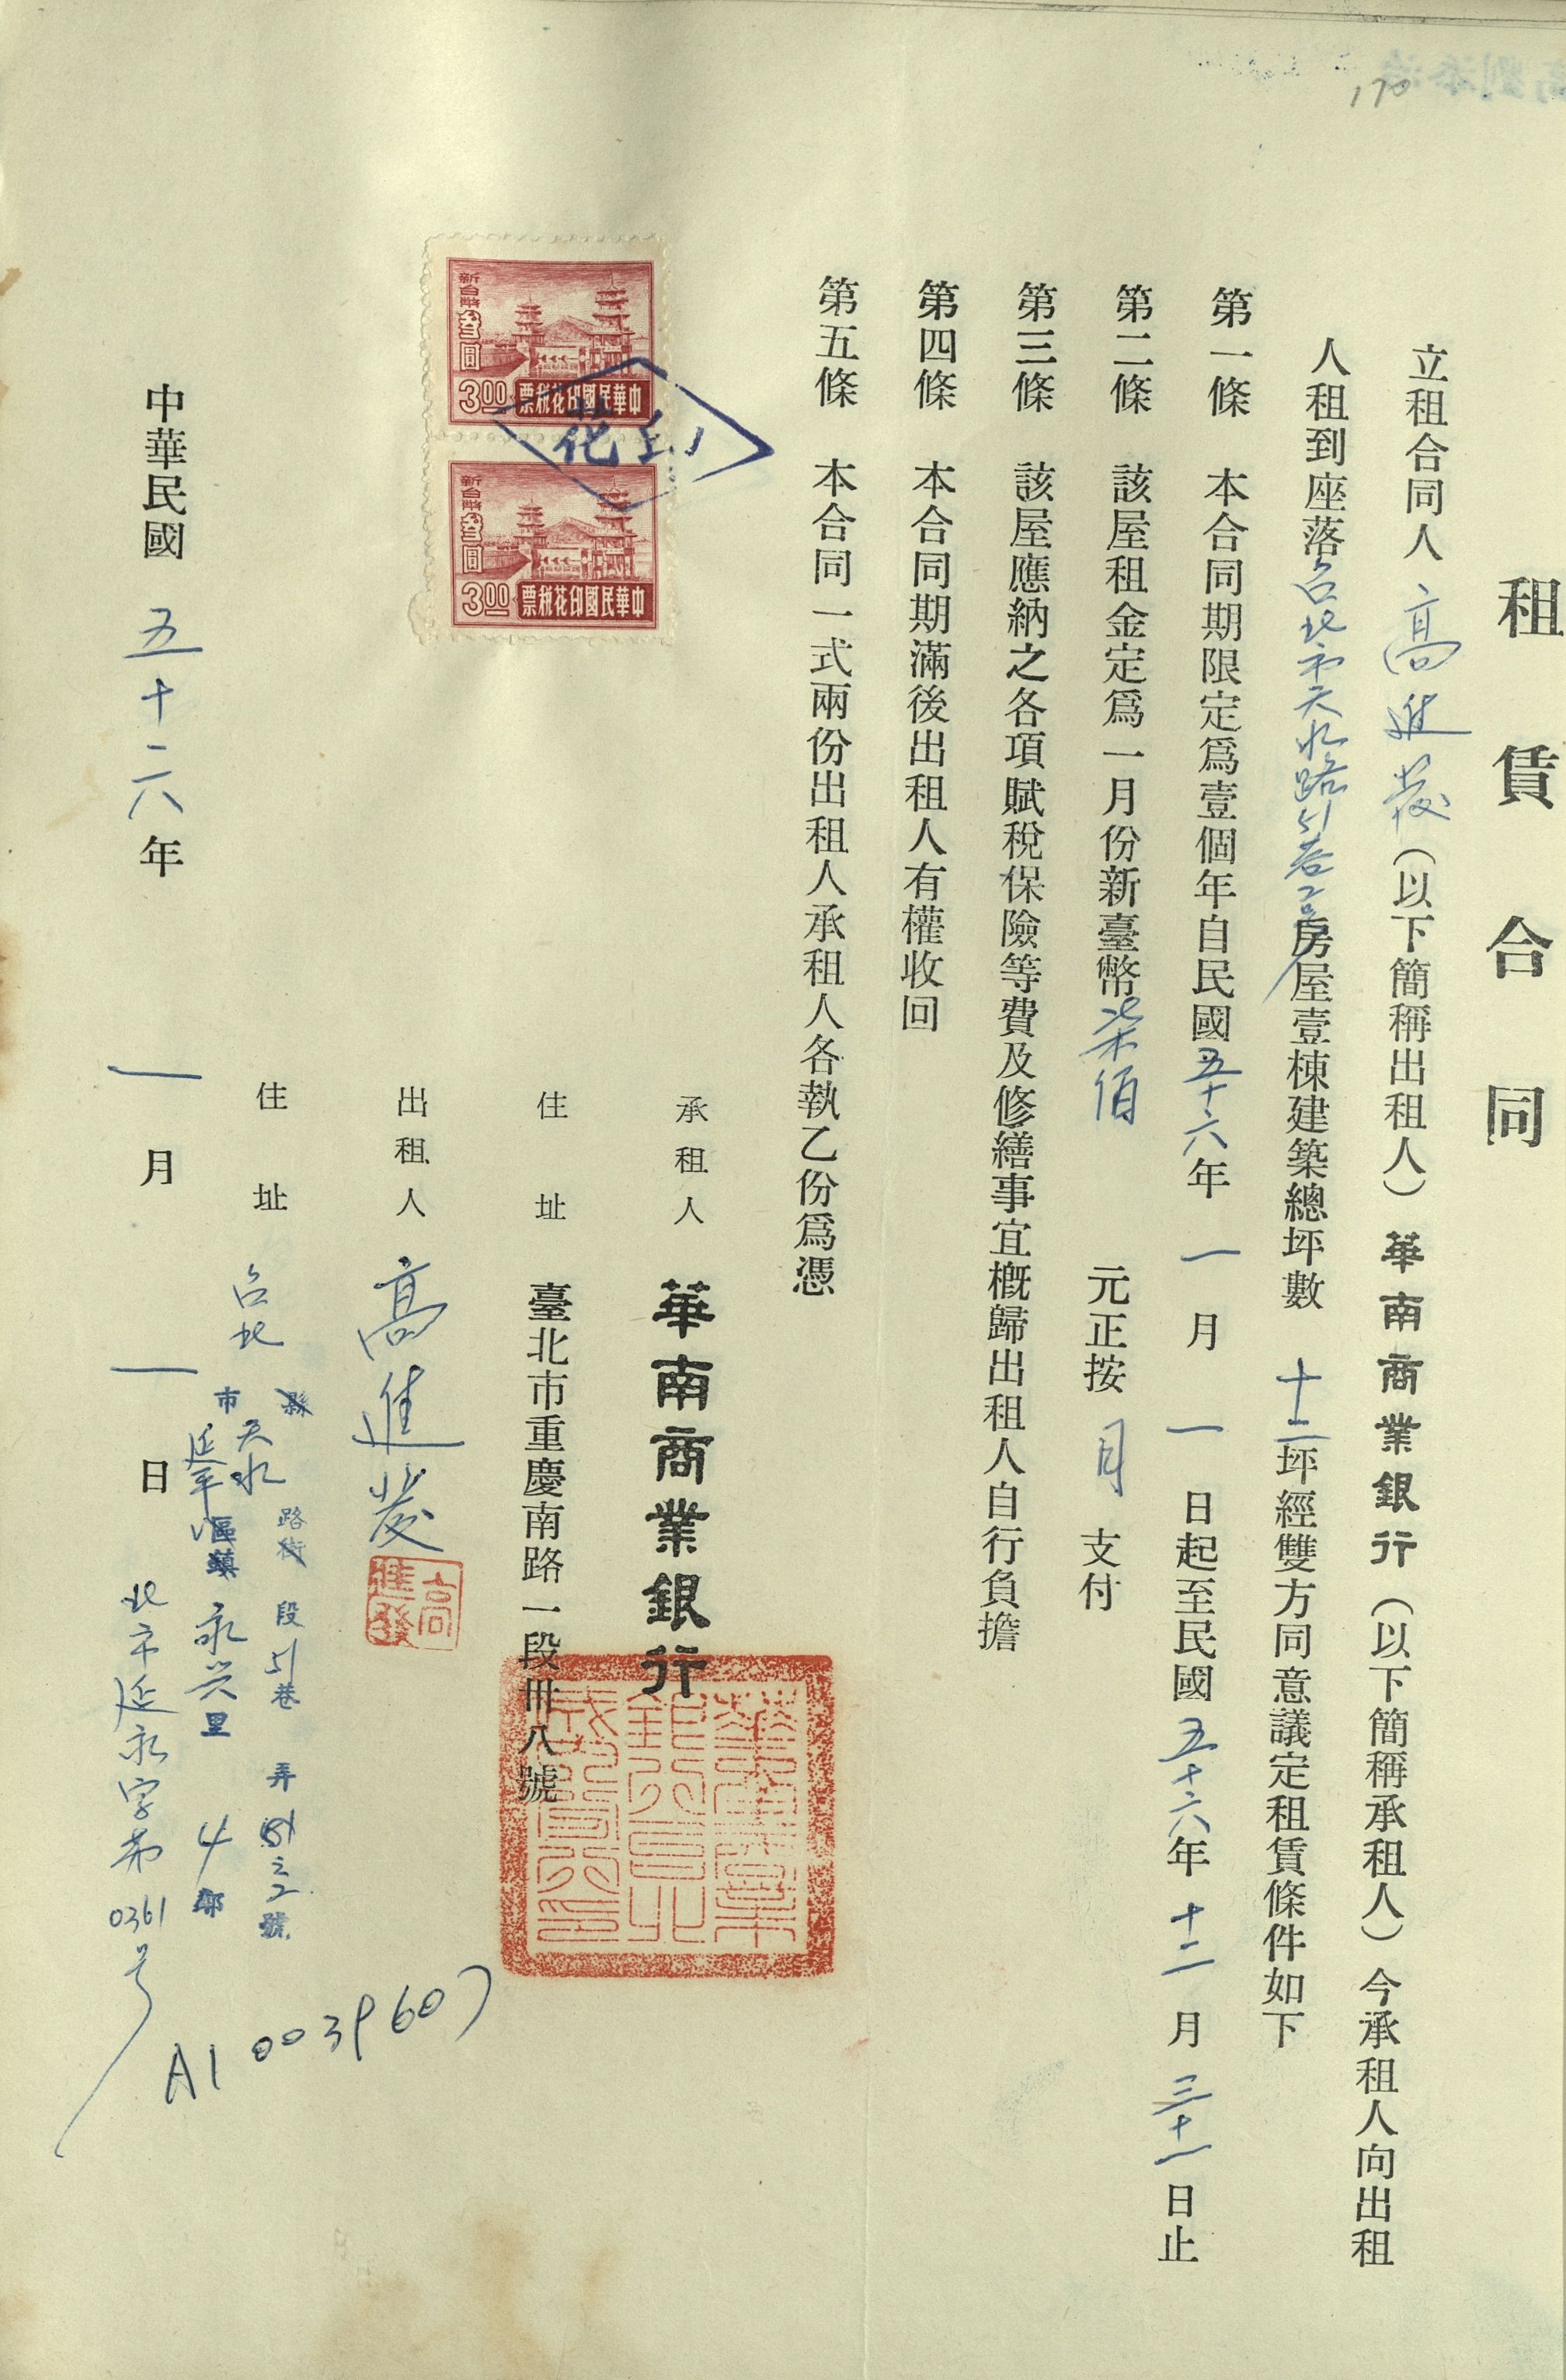 170
租賃合同
立租合同人高進發（以下簡稱出租人）華南商業銀行（以下簡稱承租人）今承租人向出租
人租到座落台北市天水路51巷2号房屋壹棟建築總坪數 十二坪經雙方同意議定租賃條件如下
第一條 本合同期限定爲壹個年自民國五十六年 一 月 一 日起至民國五十六年十二月三十一日止
第二條 該屋租金定爲一月份新臺幣柒佰 元正按 月 支付
第三條 該屋應納之各項賦稅保險等費及修繕事宜槪歸出租人自行負擔
第四條 本合同期滿後出租人有權收回
第五條 本合同一式兩份出租人承租人各執乙份爲憑
新台幣叁圓
3.00
中華民國印花稅票
新台幣叁圓
3.00
中華民國印花稅票
承租人 華南商業銀行
住址 臺北市重慶南路一段卅八號
出租人 高進發
高進發
住址 台北 縣市
天水 路街 段 51巷 弄 之2號
延平區鎮 永兴里 4鄰
北市延永字第0361号
A10039607
中華民國 五十六年 一 月 一 日